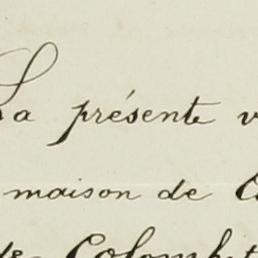 La présente v
maison de C
de Colomb